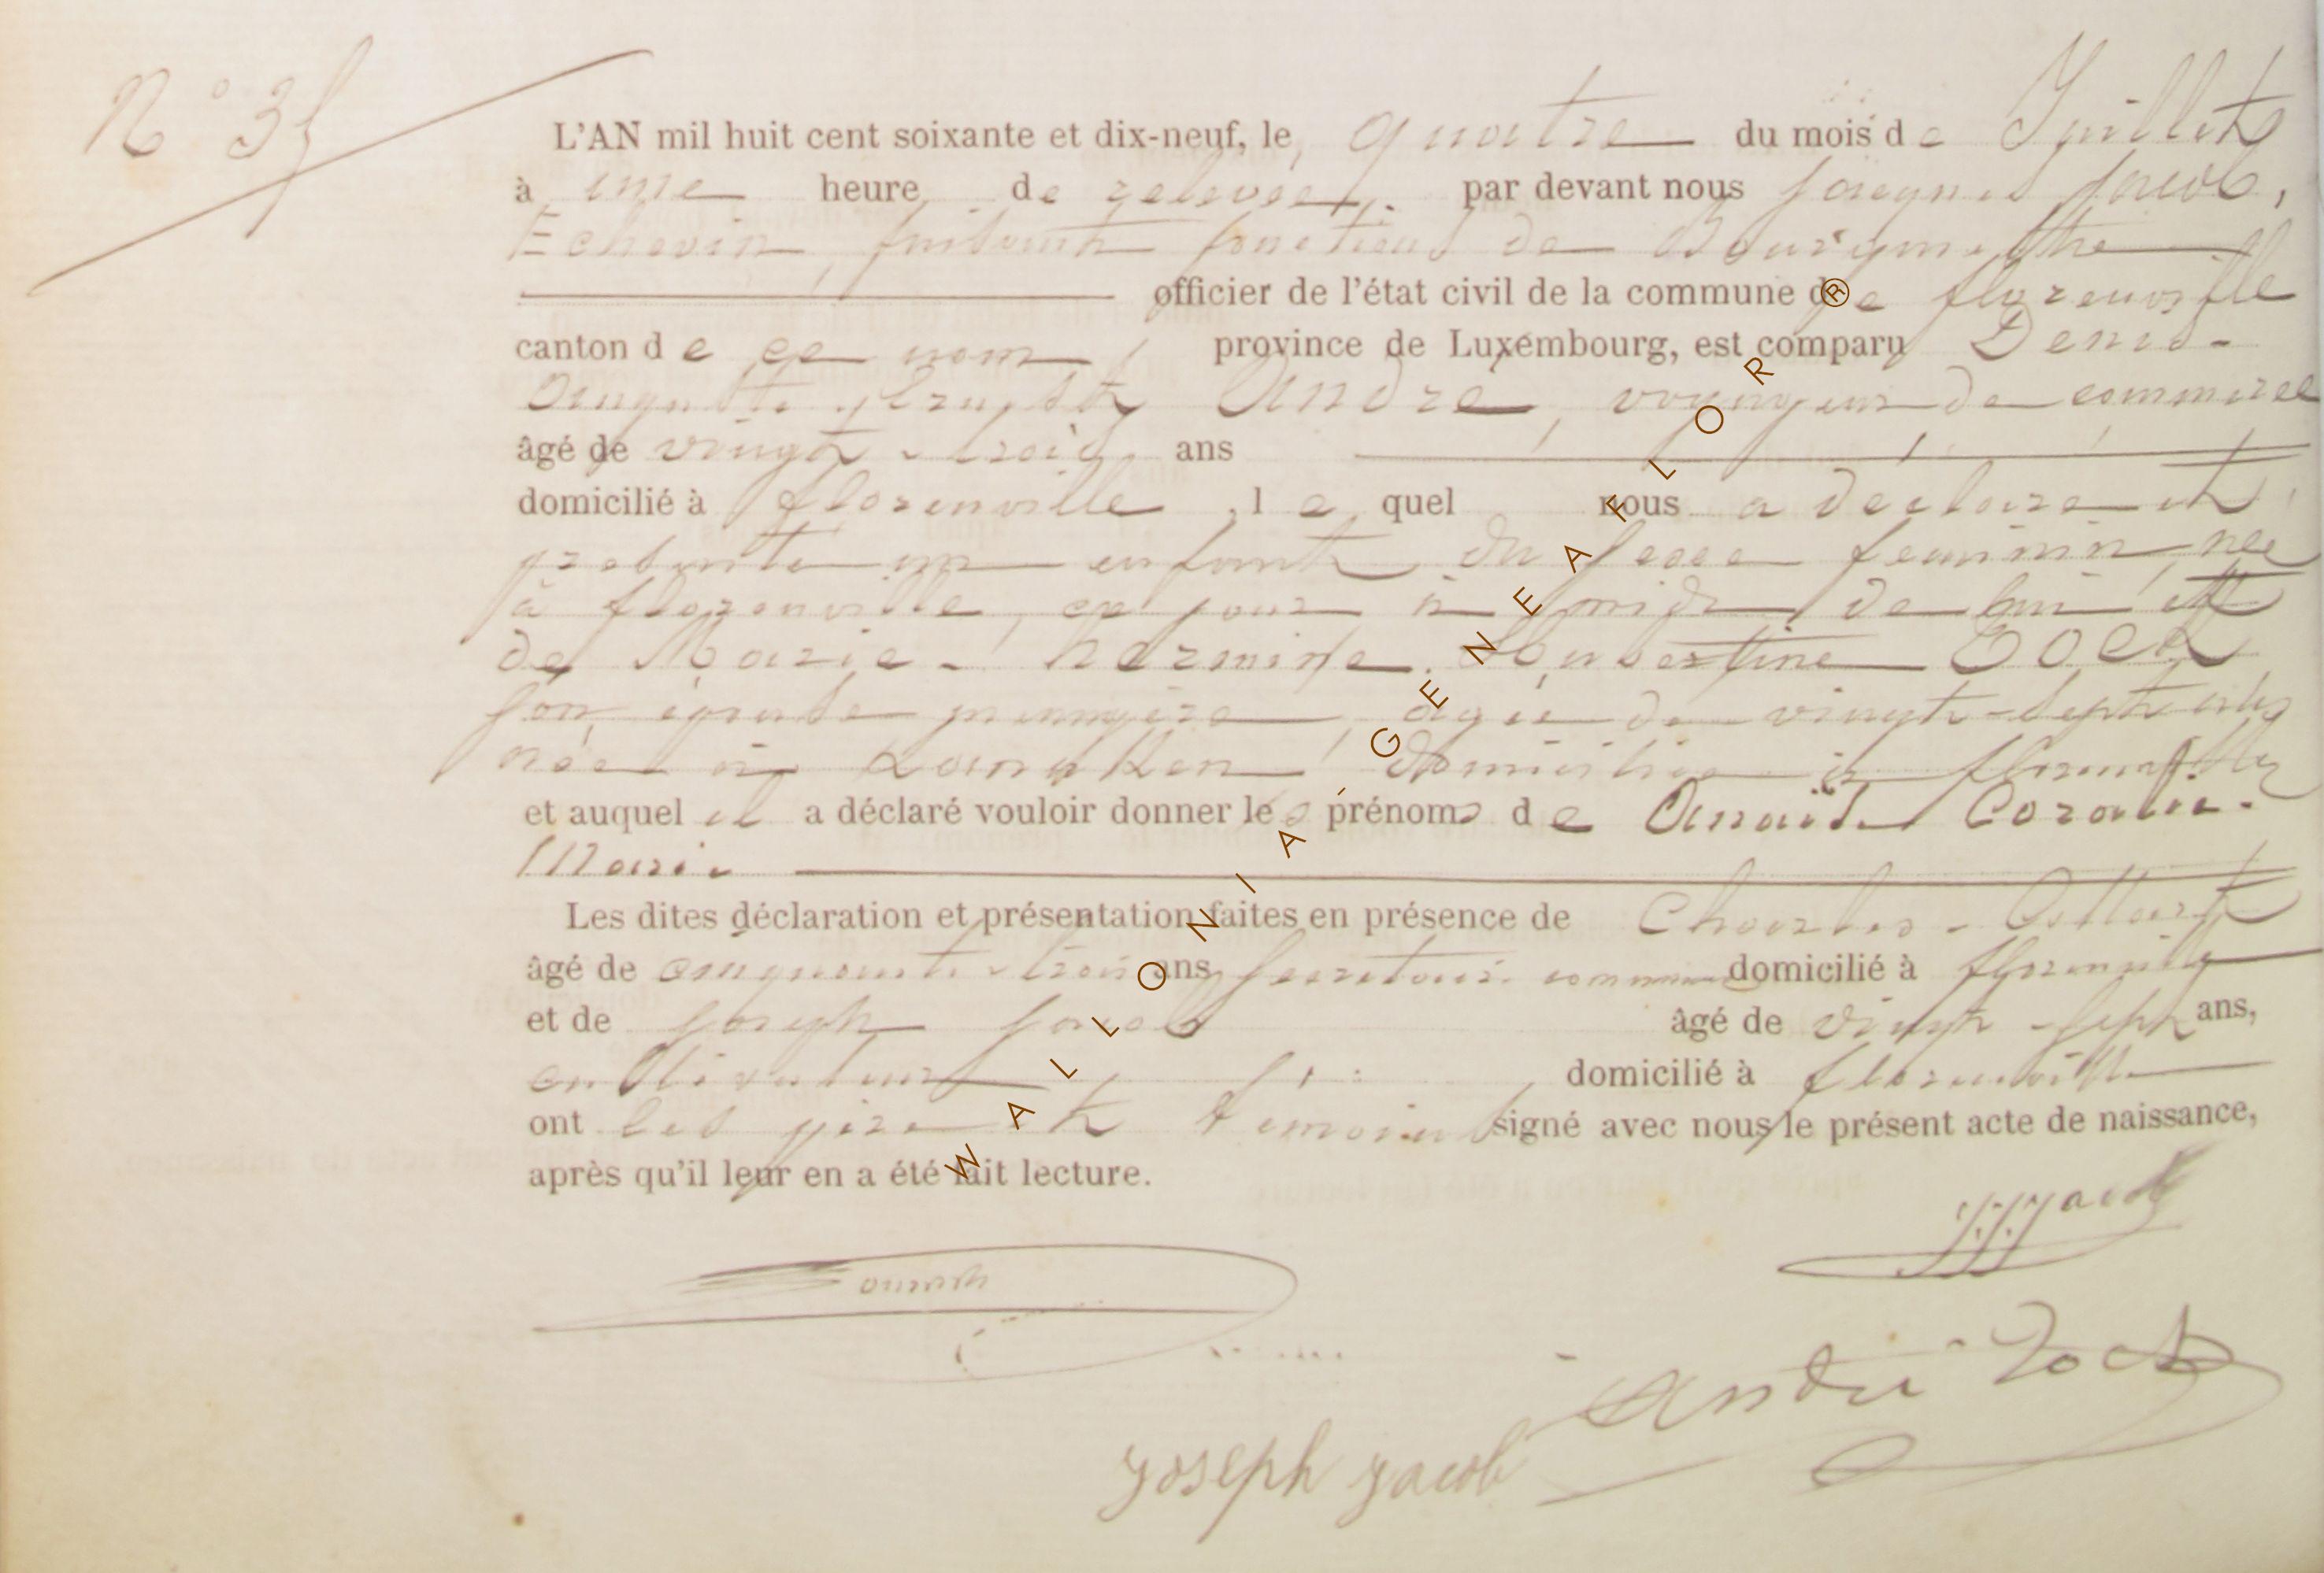 N° 35
L'AN mil huit cent soixante et dix-neuf, le quatre du mois de Juillet
à une heure de relevée, par devant nous Jacques Jacob,
Echevin, faisant fonctions de Bourgmestre
officier de l'état civil de la commune de florenville
canton de ce nom, province de Luxembourg, est comparu Denis-
Auguste André, voyageur de commerce
âgé de vingt-trois ans
domicilié à florenville, lequel nous a déclaré et
présenté un enfant du sexe féminin, née
à florenville, ce jour à midi, de lui et
de Marie-Hermine-Hubertine Zoek
son épouse ménagère, agée de vingt-sept ans
née à Lanaken, domiciliée à florenville
et auquel il a déclaré vouloir donner les prénoms de Anaïse Coralie-
Marie
Les dites déclaration et présentation faites en présence de Charles-
âgé de cinquante-trois ans, secrétaire communal domicilié à florenville
et de Joseph Jacob âgé de vingt-sept ans,
cultivateur domicilié à florenville
ont les père et témoins signé avec nous le présent acte de naissance,
après qu'il leur en a été fait lecture.
J.J. Jacob
André Zoek
Joseph Jacob
WALLONIA-GENEAFLOR®